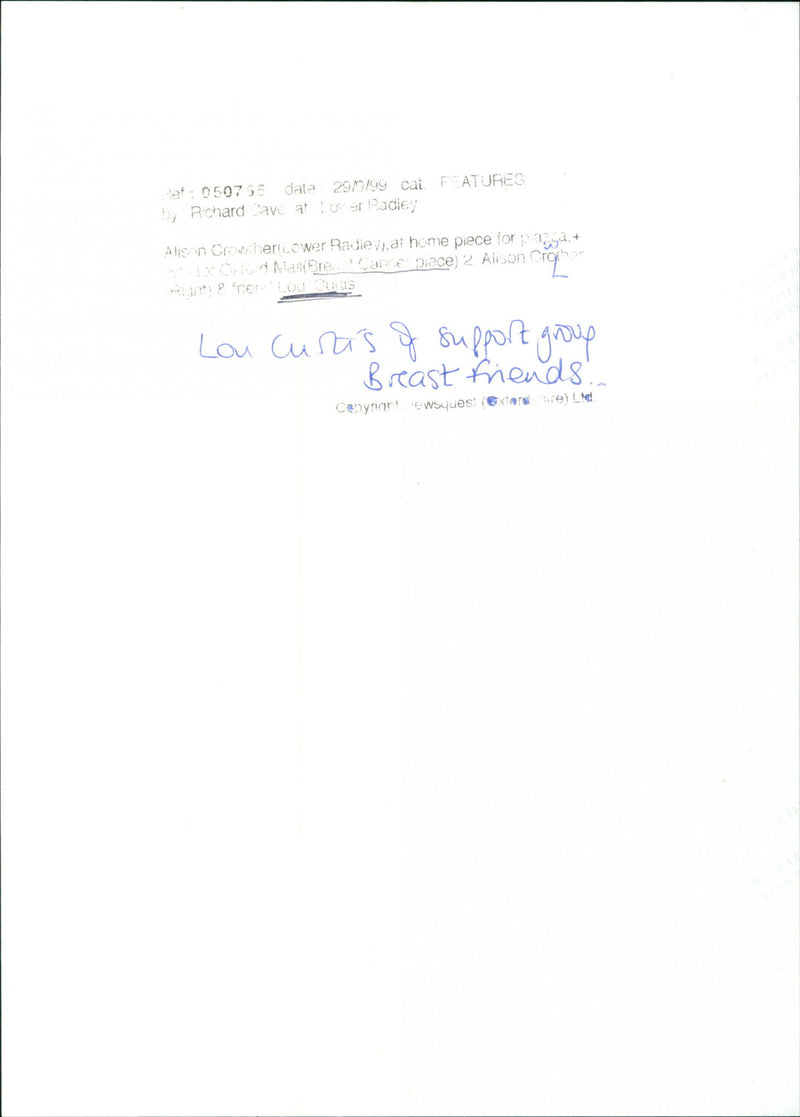 Ref: 0507 date: 29/ /99 cat. FEATURES
by Richard Cave at Lower Radley
Alison Crowther(Lower Radley),at home piece for +
for Oxford Mail(Breast Cancer piece) 2. Alison Crother
w L
(Right) & friend Lou Curtis
Lou Curtis of support group
Breast friends...
Copyright Newsquest (Oxfordshire) Ltd.